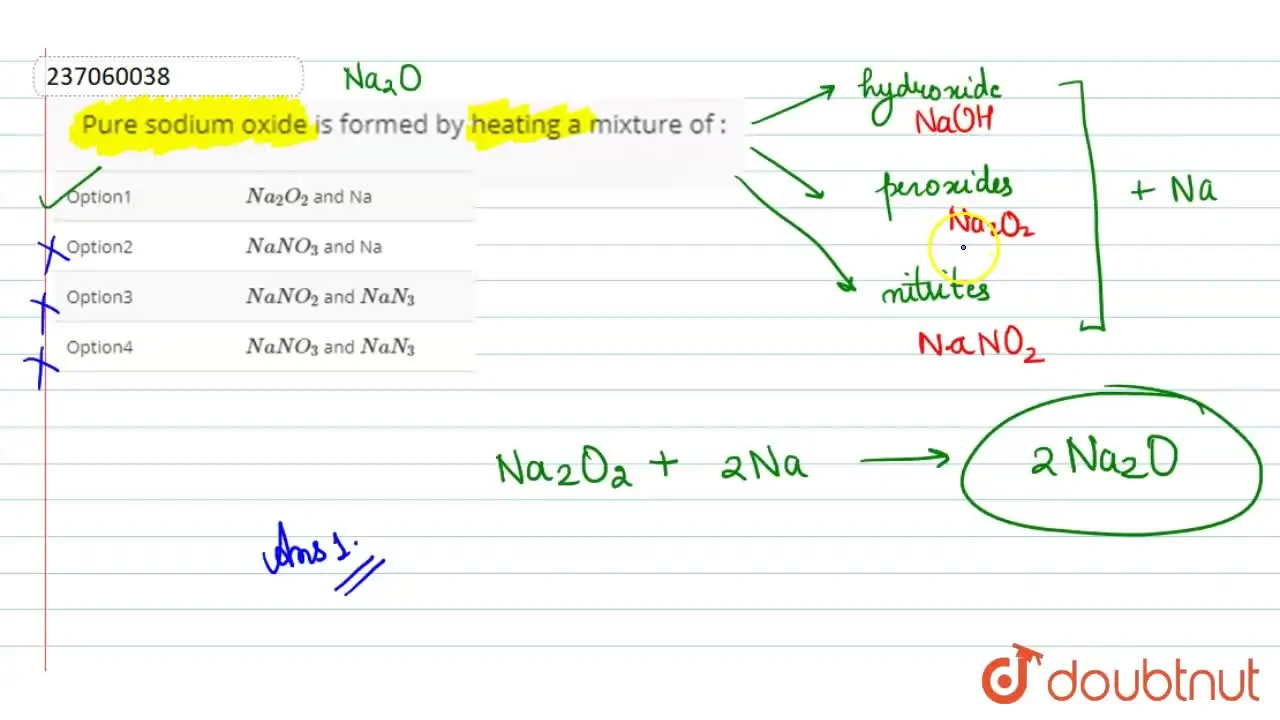 237060038
Na₂O
Pure sodium oxide is formed by heating a mixture of :
Option1 Na₂O₂ and Na
Option2 NaNO₃ and Na
Option3 NaNO₂ and NaN₃
Option4 NaNO₃ and NaN₃
hydroxide
NaOH
peroxides
Na₂O₂
nitrites
NaNO₂
+ Na
Na₂O₂ + 2Na → 2Na₂O
Ans 1.
doubtnut